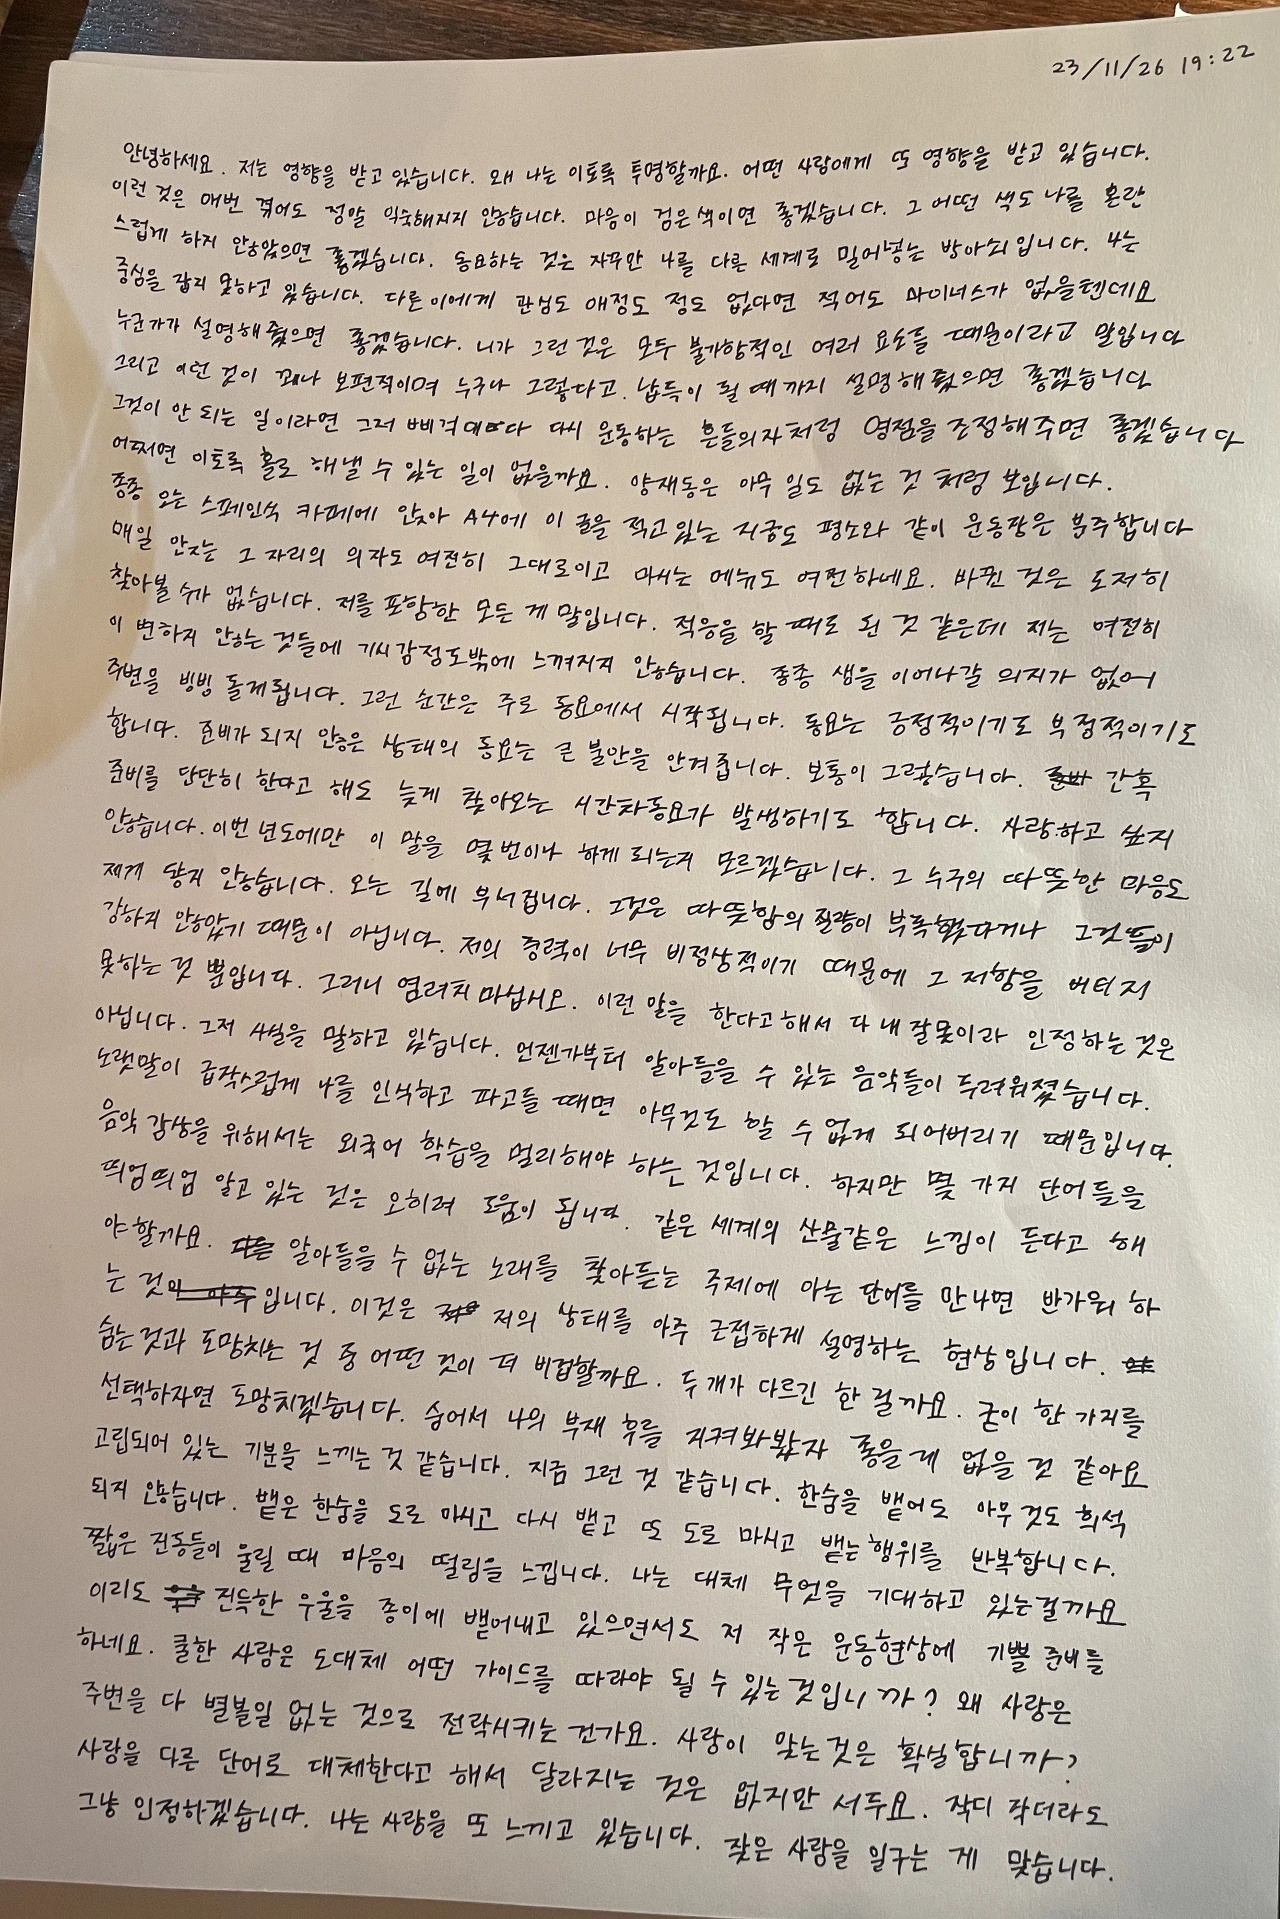 23/11/26 19:22
안녕하세요. 저는 영향을 받고 있습니다. 왜 나는 이토록 투명할까요. 어떤 사람에게 또 영향을 받고 있습니다.
이런 것은 매번 겪어도 정말 익숙해지지 않습니다. 마음이 검은색이면 좋겠습니다. 그 어떤 색도 나를 혼란
스럽게 하지 않았으면 좋겠습니다. 동요하는 것은 자꾸만 나를 다른 세계로 밀어넣는 방아쇠입니다. 나는
중심을 잡지 못하고 있습니다. 다른 이에게 관심도 애정도 정도 없다면 적어도 마이너스가 없을텐데요
누군가가 설명해줬으면 좋겠습니다. 니가 그런 것은 모두 불가항적인 여러 요소들 때문이라고 말입니다
그리고 이런 것이 꽤나 보편적이며 누구나 그렇다고. 납득이 될 때까지 설명해줬으면 좋겠습니다
그것이 안 되는 일이라면 그저 삐걱대다 다시 운동하는 흔들의자처럼 영점을 조정해주면 좋겠습니다
어쩌면 이토록 홀로 해낼 수 있는 일이 없을까요. 양재동은 아무 일도 없는 것처럼 보입니다.
종종 오는 스페인식 카페에 앉아 A4에 이 글을 적고있는 지금도 평소와 같이 운동장은 분주합니다
매일 앉는 그 자리의 의자도 여전히 그대로이고 마시는 메뉴도 여전하네요. 바뀐 것은 도저히
찾아볼 수가 없습니다. 저를 포함한 모든 게 말입니다. 적응을 할 때도 된 것 같은데 저는 여전히
이 변하지 않는 것들에 기시감정도밖에 느껴지지 않습니다. 종종 샘을 이어나갈 의지가 없어
주변을 빙빙 돌게됩니다. 그런 순간은 주로 동요에서 시작됩니다. 동요는 긍정적이기도 부정적이기도
합니다. 준비가 되지 않은 상태의 동요는 큰 불안을 안겨줍니다. 보통이 그렇습니다. 간혹
준비를 단단히 한다고 해도 늦게 찾아오는 시간차동요가 발생하기도 합니다. 사랑하고 싶지
않습니다. 이번 년도에만 이 말을 몇번이나 하게 되는지 모르겠습니다. 그 누구의 따뜻한 마음도
제게 닿지 않습니다. 오는 길에 부서집니다. 그것은 따뜻함의 질량이 부족했다거나 그것들이
강하지 않았기 때문이 아닙니다. 저의 중력이 너무 비정상적이기 때문에 그 저항을 버티지
못하는 것 뿐입니다. 그러니 염려치 마십시오. 이런 말을 한다고해서 다 내 잘못이라 인정하는 것은
아닙니다. 그저 사실을 말하고 있습니다. 언젠가부터 알아들을 수 있는 음악들이 두려워졌습니다.
노랫말이 급작스럽게 나를 인식하고 파고들 때면 아무것도 할 수 없게 되어버리기 때문입니다.
음악 감상을 위해서는 외국어 학습을 멀리해야 하는 것입니다. 하지만 몇 가지 단어들을
띄엄띄엄 알고 있는 것은 오히려 도움이 됩니다. 같은 세계의 산물같은 느낌이 든다고 해
야할까요. 알아들을 수 없는 노래를 찾아듣는 주제에 아는 단어를 만나면 반가워 하
는 것입니다. 이것은 저의 상태를 아주 근접하게 설명하는 현상입니다.
숨는것과 도망치는 것 중 어떤 것이 더 비겁할까요. 두개가 다르긴 한 걸까요. 굳이 한 가지를
선택하자면 도망치겠습니다. 숨어서 나의 부재 후를 지켜봐봤자 좋을 게 없을 것 같아요
고립되어 있는 기분을 느끼는 것 같습니다. 지금 그런 것 같습니다. 한숨을 뱉어도 아무것도 희석
되지 않습니다. 뱉은 한숨을 도로 마시고 다시 뱉고 또 도로 마시고 뱉는 행위를 반복합니다.
짧은 진동들이 울릴 때 마음의 떨림을 느낍니다. 나는 대체 무엇을 기대하고 있는걸까요
이리도 진득한 우울을 종이에 뱉어내고 있으면서도 저 작은 운동현상에 기쁠 준비를
하네요. 쿨한 사람은 도대체 어떤 가이드를 따라야 될 수 있는것입니까? 왜 사랑은
주변을 다 별볼일 없는 것으로 전락시키는 건가요. 사랑이 맞는것은 확실합니까?
사랑을 다른 단어로 대체한다고 해서 달라지는 것은 없지만 서두요. 작디 작더라도
그냥 인정하겠습니다. 나는 사랑을 또 느끼고 있습니다. 잦은 사랑을 일구는 게 맞습니다.